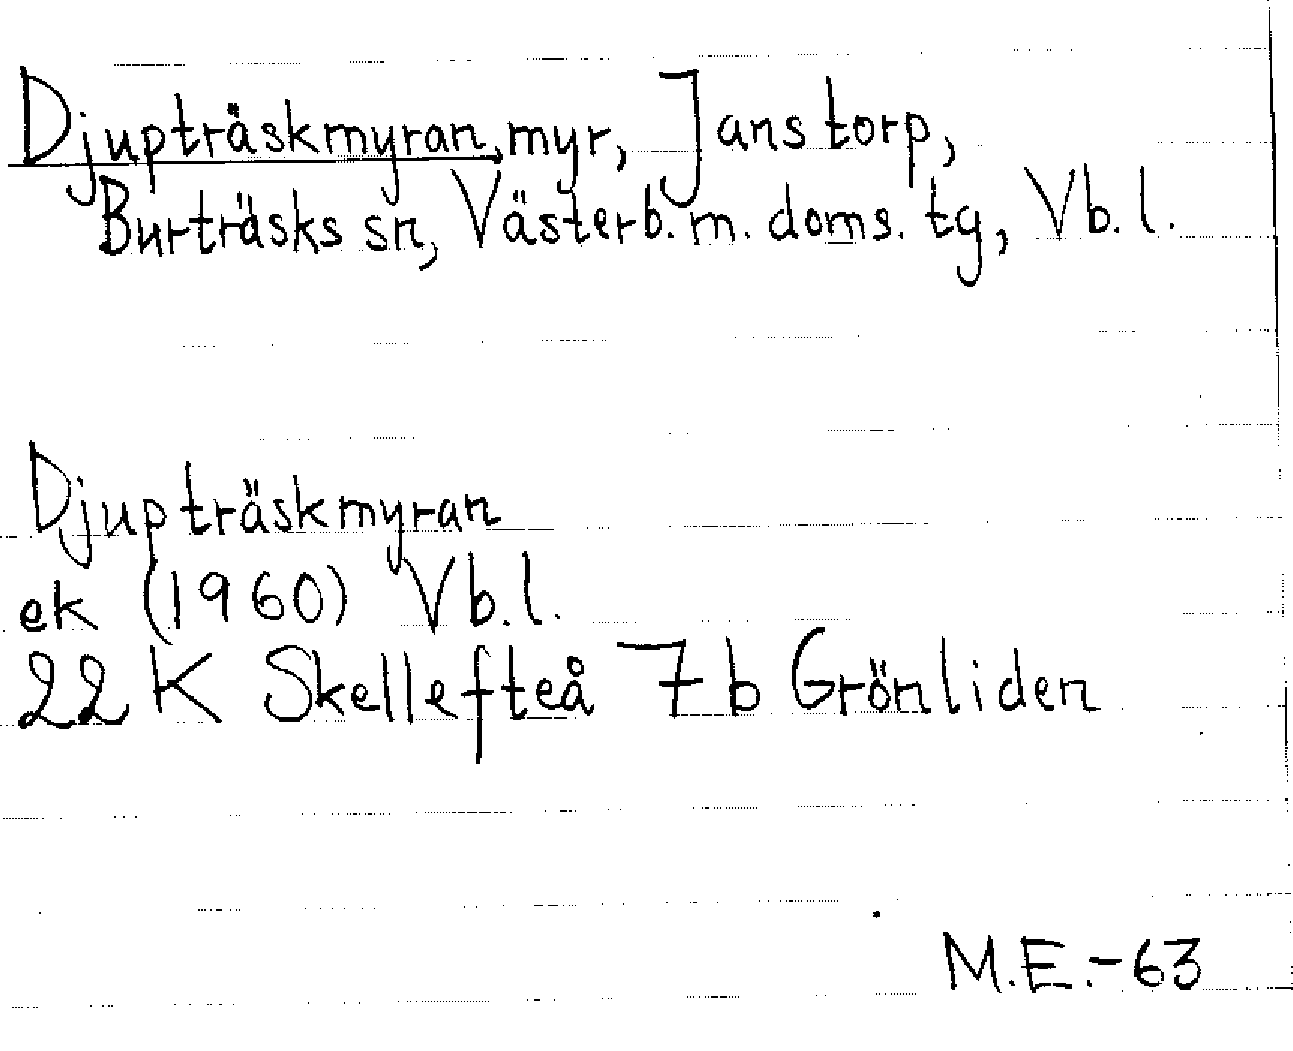 Djupträskmyran, myr, Janstorp,
Burträsks sn, Västerb. m. doms. tg, Vb. l.
Djupträskmyran
ek (1960) Vb. l.
22 K Skellefteå 7 b Grönliden
M.E.-63